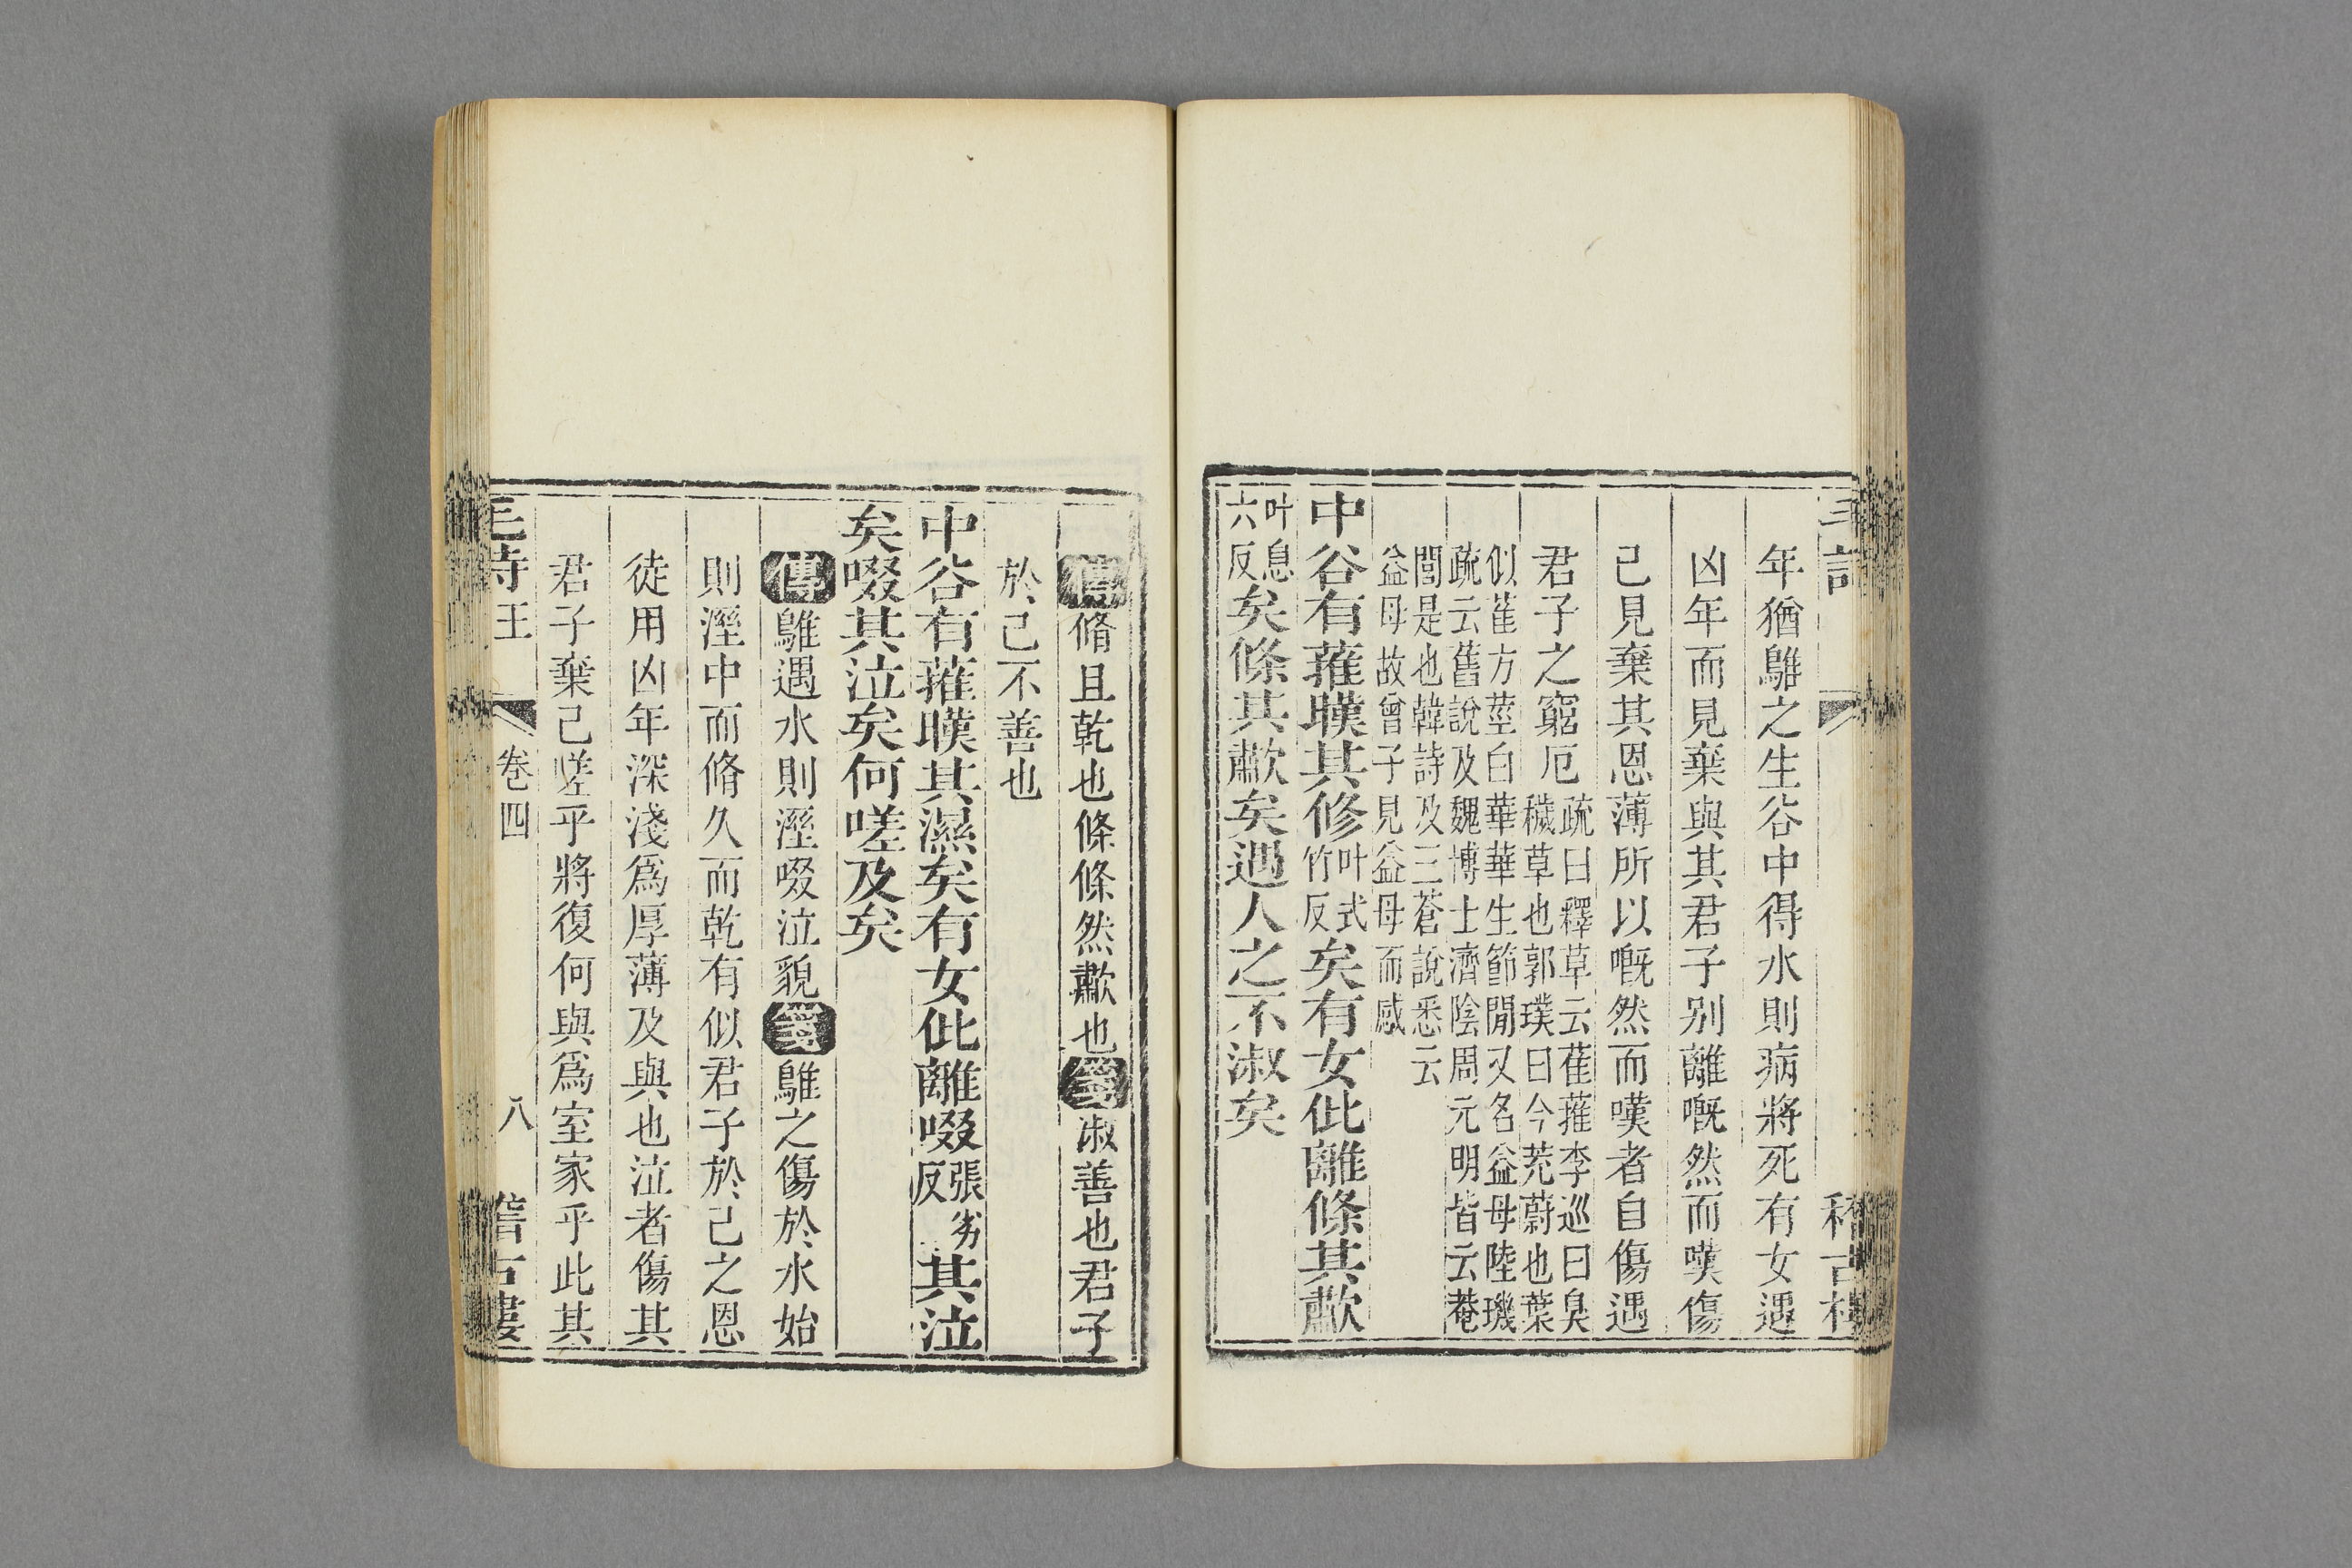 年猶鵻之生谷中得水則病將死有女遇
凶年而見棄與其君子别離嘅然而嘆傷
己見棄其恩薄所以嘅然而嘆者自傷遇
君子之窮厄疏曰釋草云萑蓷李巡曰臭
穢草也郭璞曰今茺蔚也葉
似萑方莖白華華生節間又名益母陸璣
疏云舊說及魏博士濟陰周元明皆云菴
閭是也韓詩及三蒼說悉云
益母故曾子見益母而感
中谷有蓷暵其修叶式竹反矣有女仳離條其歗
叶息六反矣條其歗矣遇人之不淑矣
傳脩且乾也條條然歗也箋淑善也君子
於己不善也
中谷有蓷暵其濕矣有女仳離啜張劣反其泣
矣啜其泣矣何嗟及矣
傳鵻遇水則溼啜泣貌箋鵻之傷於水始
則溼中而脩久而乾有似君子於己之恩
徒用凶年深淺爲厚薄及與也泣者傷其
君子棄己嗟乎將復何與爲室家乎此其
毛詩王 卷四 八